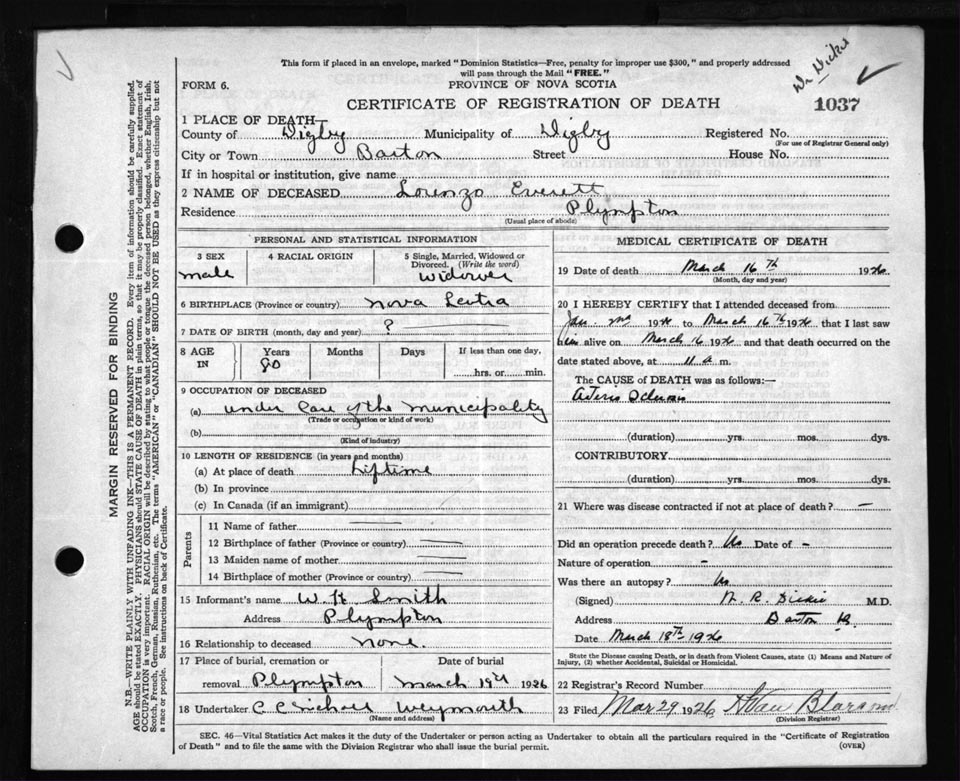 This form if placed in an envelope, marked "Dominion Statistics—Free, penalty for improper use $300," and properly addressed
will pass through the Mail "FREE."
FORM 6.
PROVINCE OF NOVA SCOTIA
CERTIFICATE OF REGISTRATION OF DEATH
1037
1 PLACE OF DEATH—
County of Digby Municipality of Digby Registered No.
(For use of Registrar General only)
City or Town Barton Street House No.
If in hospital or institution, give name
2 NAME OF DECEASED Lorenzo Everett
Residence Plympton
(Usual place of abode)
PERSONAL AND STATISTICAL INFORMATION
3 SEX male
4 RACIAL ORIGIN
5 Single, Married, Widowed or
Divorced. (Write the word)
Widower
6 BIRTHPLACE (Province or country) Nova Scotia
7 DATE OF BIRTH (month, day and year) ?
8 AGE IN
Years Months Days If less than one day,
80 hrs. or min.
9 OCCUPATION OF DECEASED
(a) under care of the municipality
(Trade or occupation or kind of work)
(b)
(Kind of industry)
10 LENGTH OF RESIDENCE (in years and months)
(a) At place of death Liftime
(b) In province
(c) In Canada (if an immigrant)
Parents
11 Name of father
12 Birthplace of father (Province or country)
13 Maiden name of mother
14 Birthplace of mother (Province or country)
15 Informant's name W H Smith
Address Plympton
16 Relationship to deceased none.
17 Place of burial, cremation or Date of burial
removal Plympton March 19th 1926
18 Undertaker Weymouth
(Name and address)
MEDICAL CERTIFICATE OF DEATH
19 Date of death March 16th 1926
(Month, day and year)
20 I HEREBY CERTIFY that I attended deceased from
1926 to March 16th 1926 that I last saw
him alive on March 16 1926 and that death occurred on the
date stated above, at 11 a. m.
The CAUSE OF DEATH was as follows:—
(duration) yrs. mos. dys.
CONTRIBUTORY
(duration) yrs. mos. dys.
21 Where was disease contracted if not at place of death? —
Did an operation precede death? No Date of –
Nature of operation –
Was there an autopsy? No
(Signed) W. R. Dickie M.D.
Address Barton
Date March 18th 1926
State the Disease causing Death, or in death from Violent Causes, state (1) Means and Nature of
Injury, (2) whether Accidental, Suicidal or Homicidal.
22 Registrar's Record Number
23 Filed Mar 29 1926
(Division Registrar)
SEC. 46—Vital Statistics Act makes it the duty of the Undertaker or person acting as Undertaker to obtain all the particulars required in the "Certificate of Registration
of Death" and to file the same with the Division Registrar who shall issue the burial permit.
(OVER)
MARGIN RESERVED FOR BINDING
N.B.—WRITE PLAINLY WITH UNFADING INK—THIS IS A PERMANENT RECORD. Every item of information should be carefully supplied.
AGE should be stated EXACTLY. PHYSICIANS should STATE CAUSE OF DEATH in plain terms, so that it may be properly classified. Exact statement of
OCCUPATION is very important. RACIAL ORIGIN will be described by stating to what people or tongue the deceased person belonged, whether English, Irish,
Scotch, French, German, Russian, Ruthenian, etc. The terms "AMERICAN" or "CANADIAN" SHOULD NOT BE USED as they express citizenship but not
a race or people. See instructions on back of Certificate.